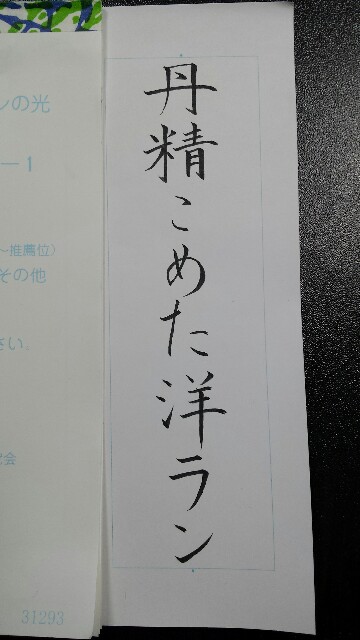 丹精こめた洋ラン
ンの光
ー1
〜推薦位）
その他
さい。
会
31293